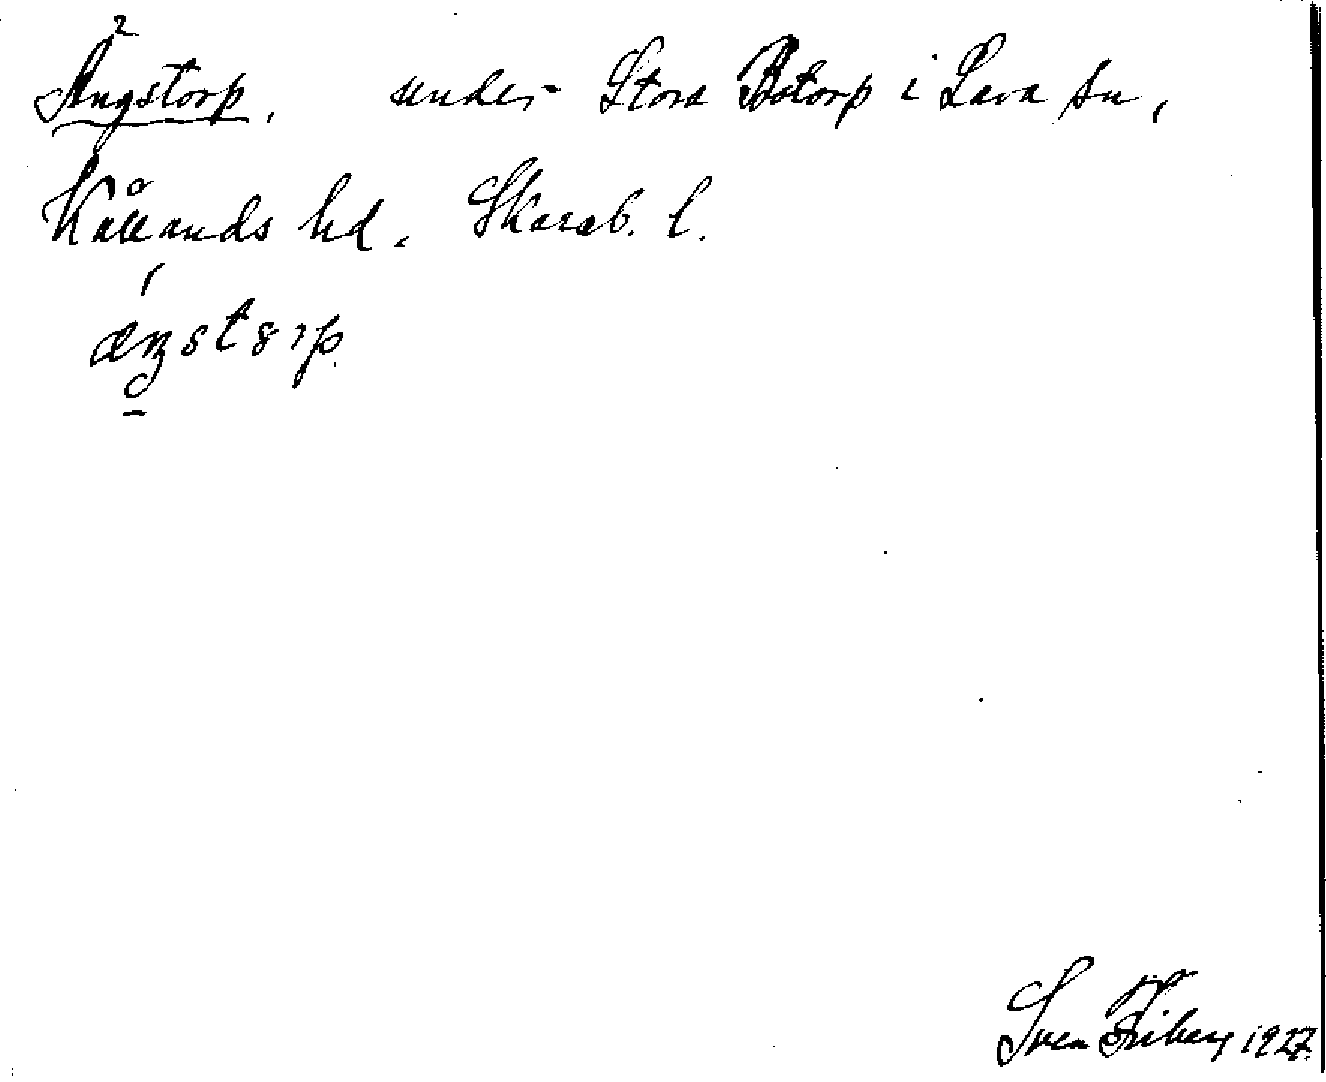 Ängstorp, under Stora Botorp i Lava sn,
Kållands hd. Skarab. l.
æŋstȣrp.
Sven Friberg 1927